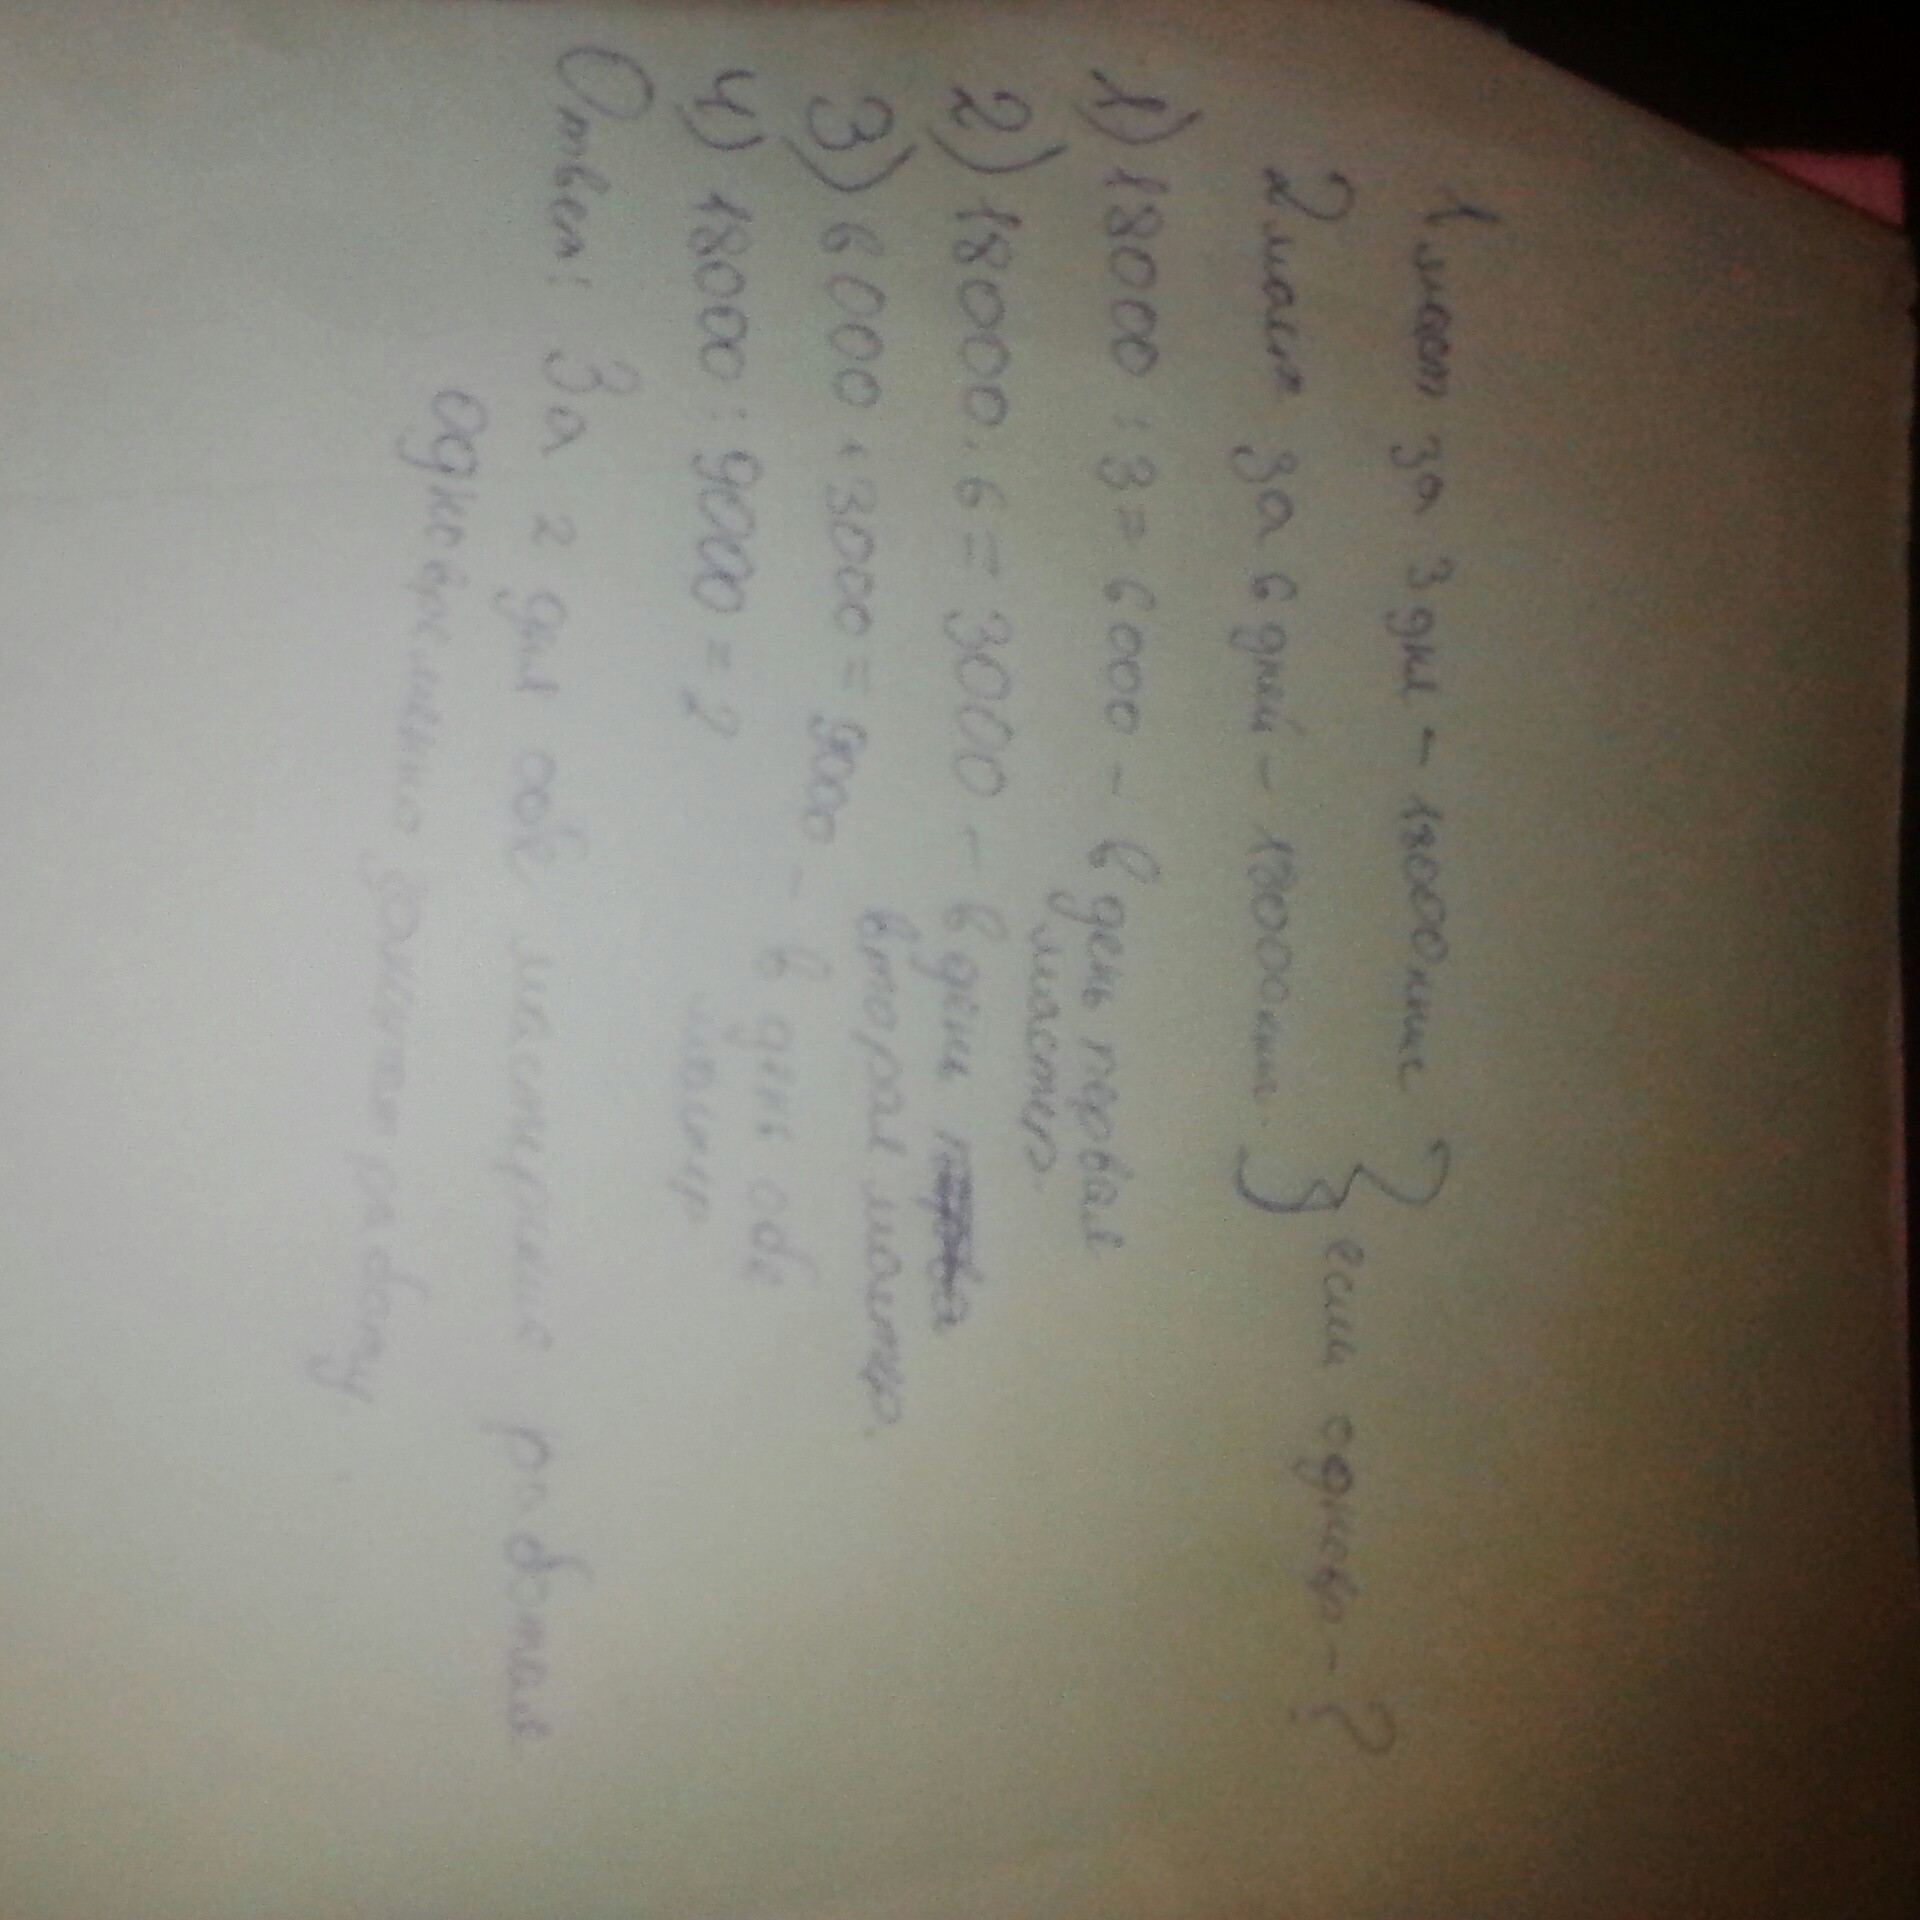 1 маст за 3 дня - 18000 лис
2 маст за 6 дней - 18000 лис. } если одновр - ?
1) 18000 : 3 = 6000 - в день первая
мастер.
2) 18000 : 6 = 3000 - в день
вторая мастер.
3) 6000 + 3000 = 9000 - в день обе
мастер
4) 18000 : 9000 = 2
Ответ: За 2 дня обе мастерские работая
одновременно закончат работу.